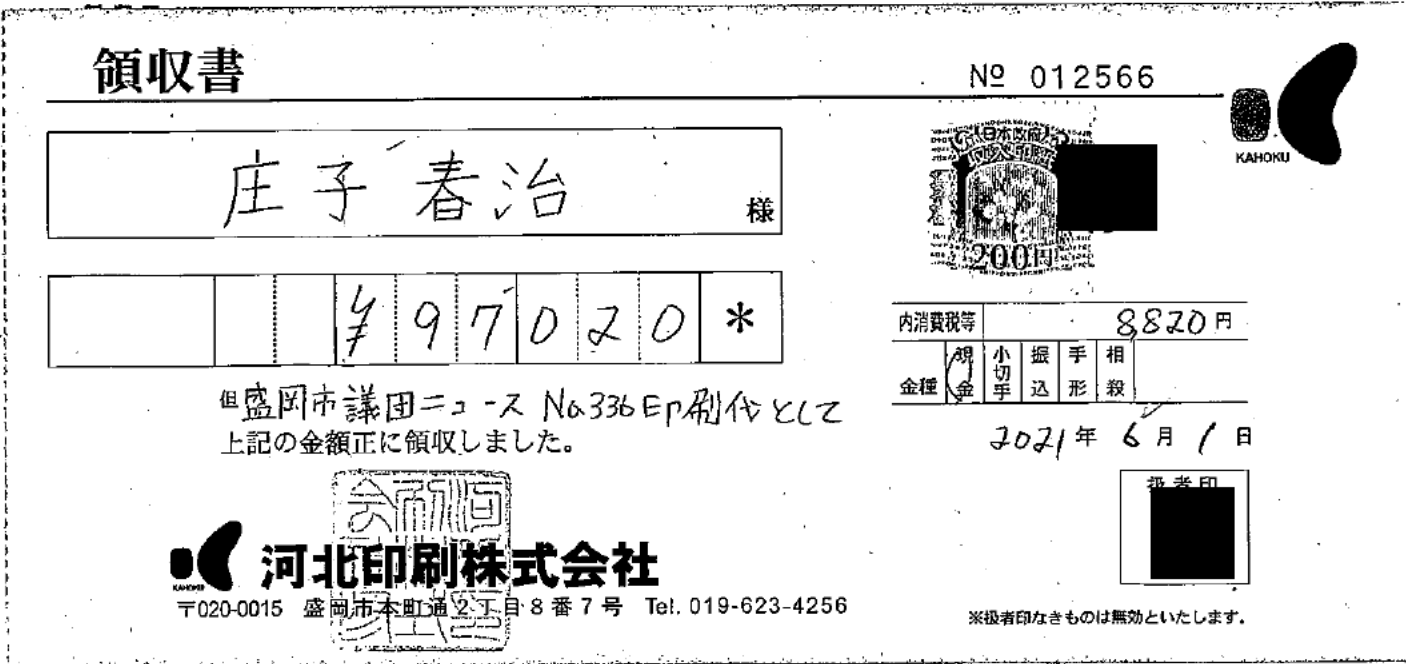 領収書
№ 012566
KAHOKU
庄子 春治 様
日本政府
収入印紙
200円
¥97020*
内消費税等 8,820円
金種 現金 小切手 振込 手形 相殺
但盛岡市議団ニュース No.336印刷代として
上記の金額正に領収しました。
2021年6月1日
扱者印
KAHOKU
河北印刷株式会社
〒020-0015 盛岡市本町通2丁目8番7号 Tel. 019-623-4256
※扱者印なきものは無効といたします。